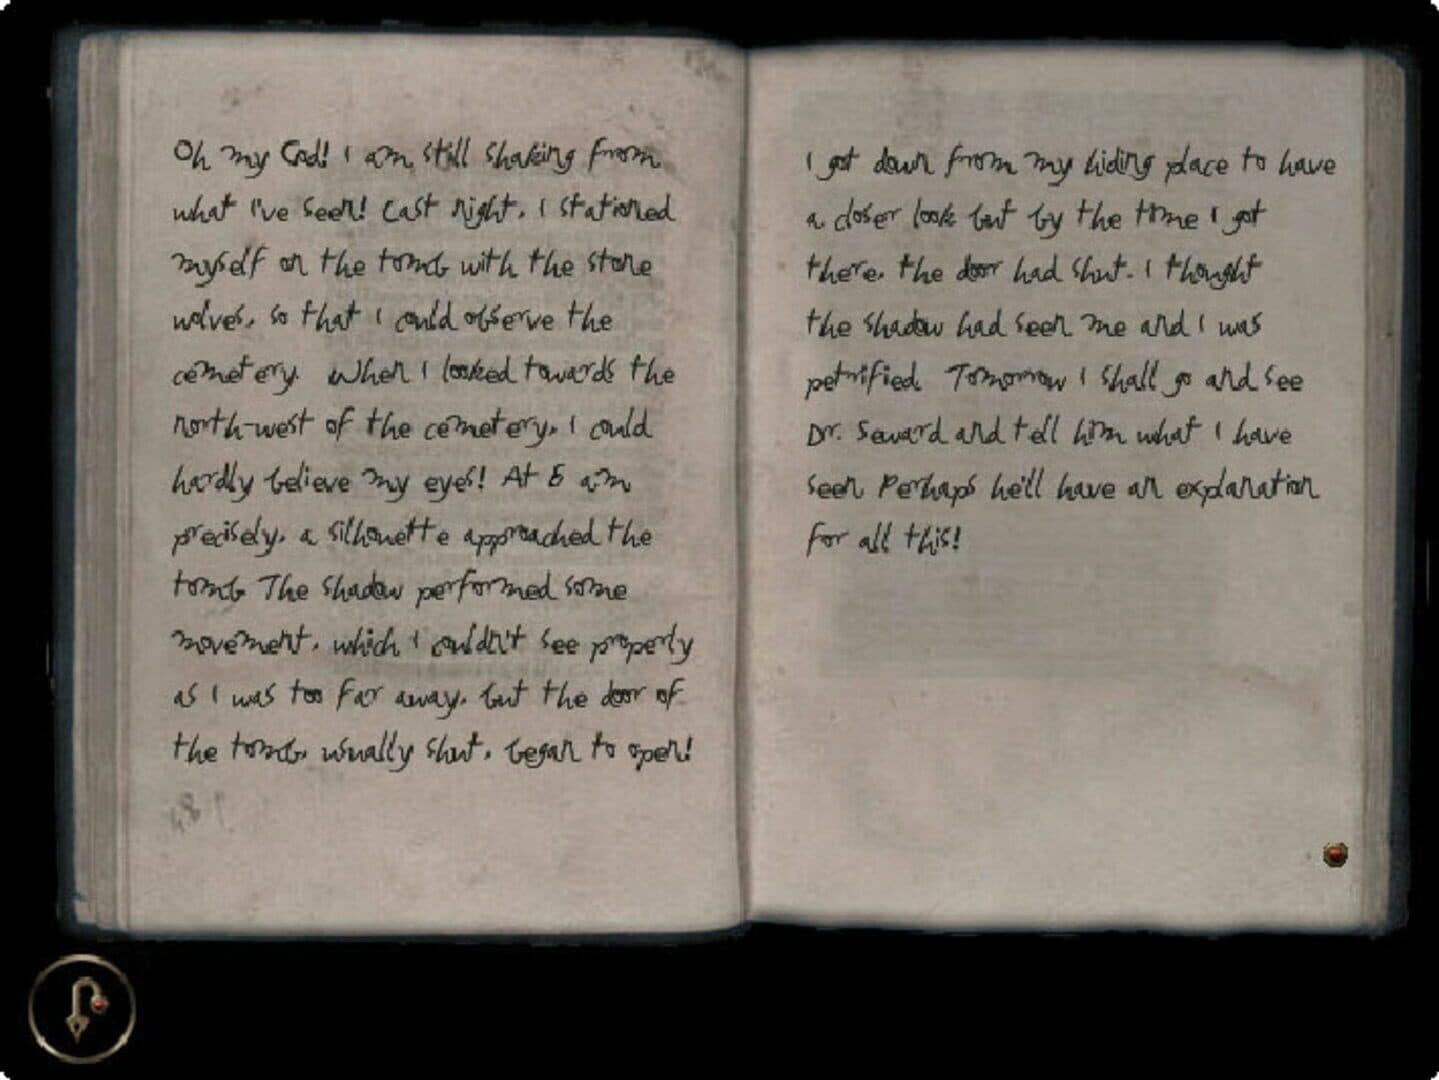 Oh my God! I am still shaking from
what I've seen! Last night, I stationed
myself on the tomb with the stone
wolves, so that I could observe the
cemetery. When I looked towards the
north-west of the cemetery, I could
hardly believe my eyes! At am
precisely, a silhouette approached the
tomb. The shadow performed some
movement, which I couldn't see properly
as I was too far away, but the door of
the tomb, usually shut, began to open!
I got down from my hiding place to have
a closer look but by the time I got
there, the door had shut. I thought
the shadow had seen me and I was
petrified. Tomorrow I shall go and see
Dr. Seward and tell him what I have
seen. Perhaps he'll have an explanation
for all this!